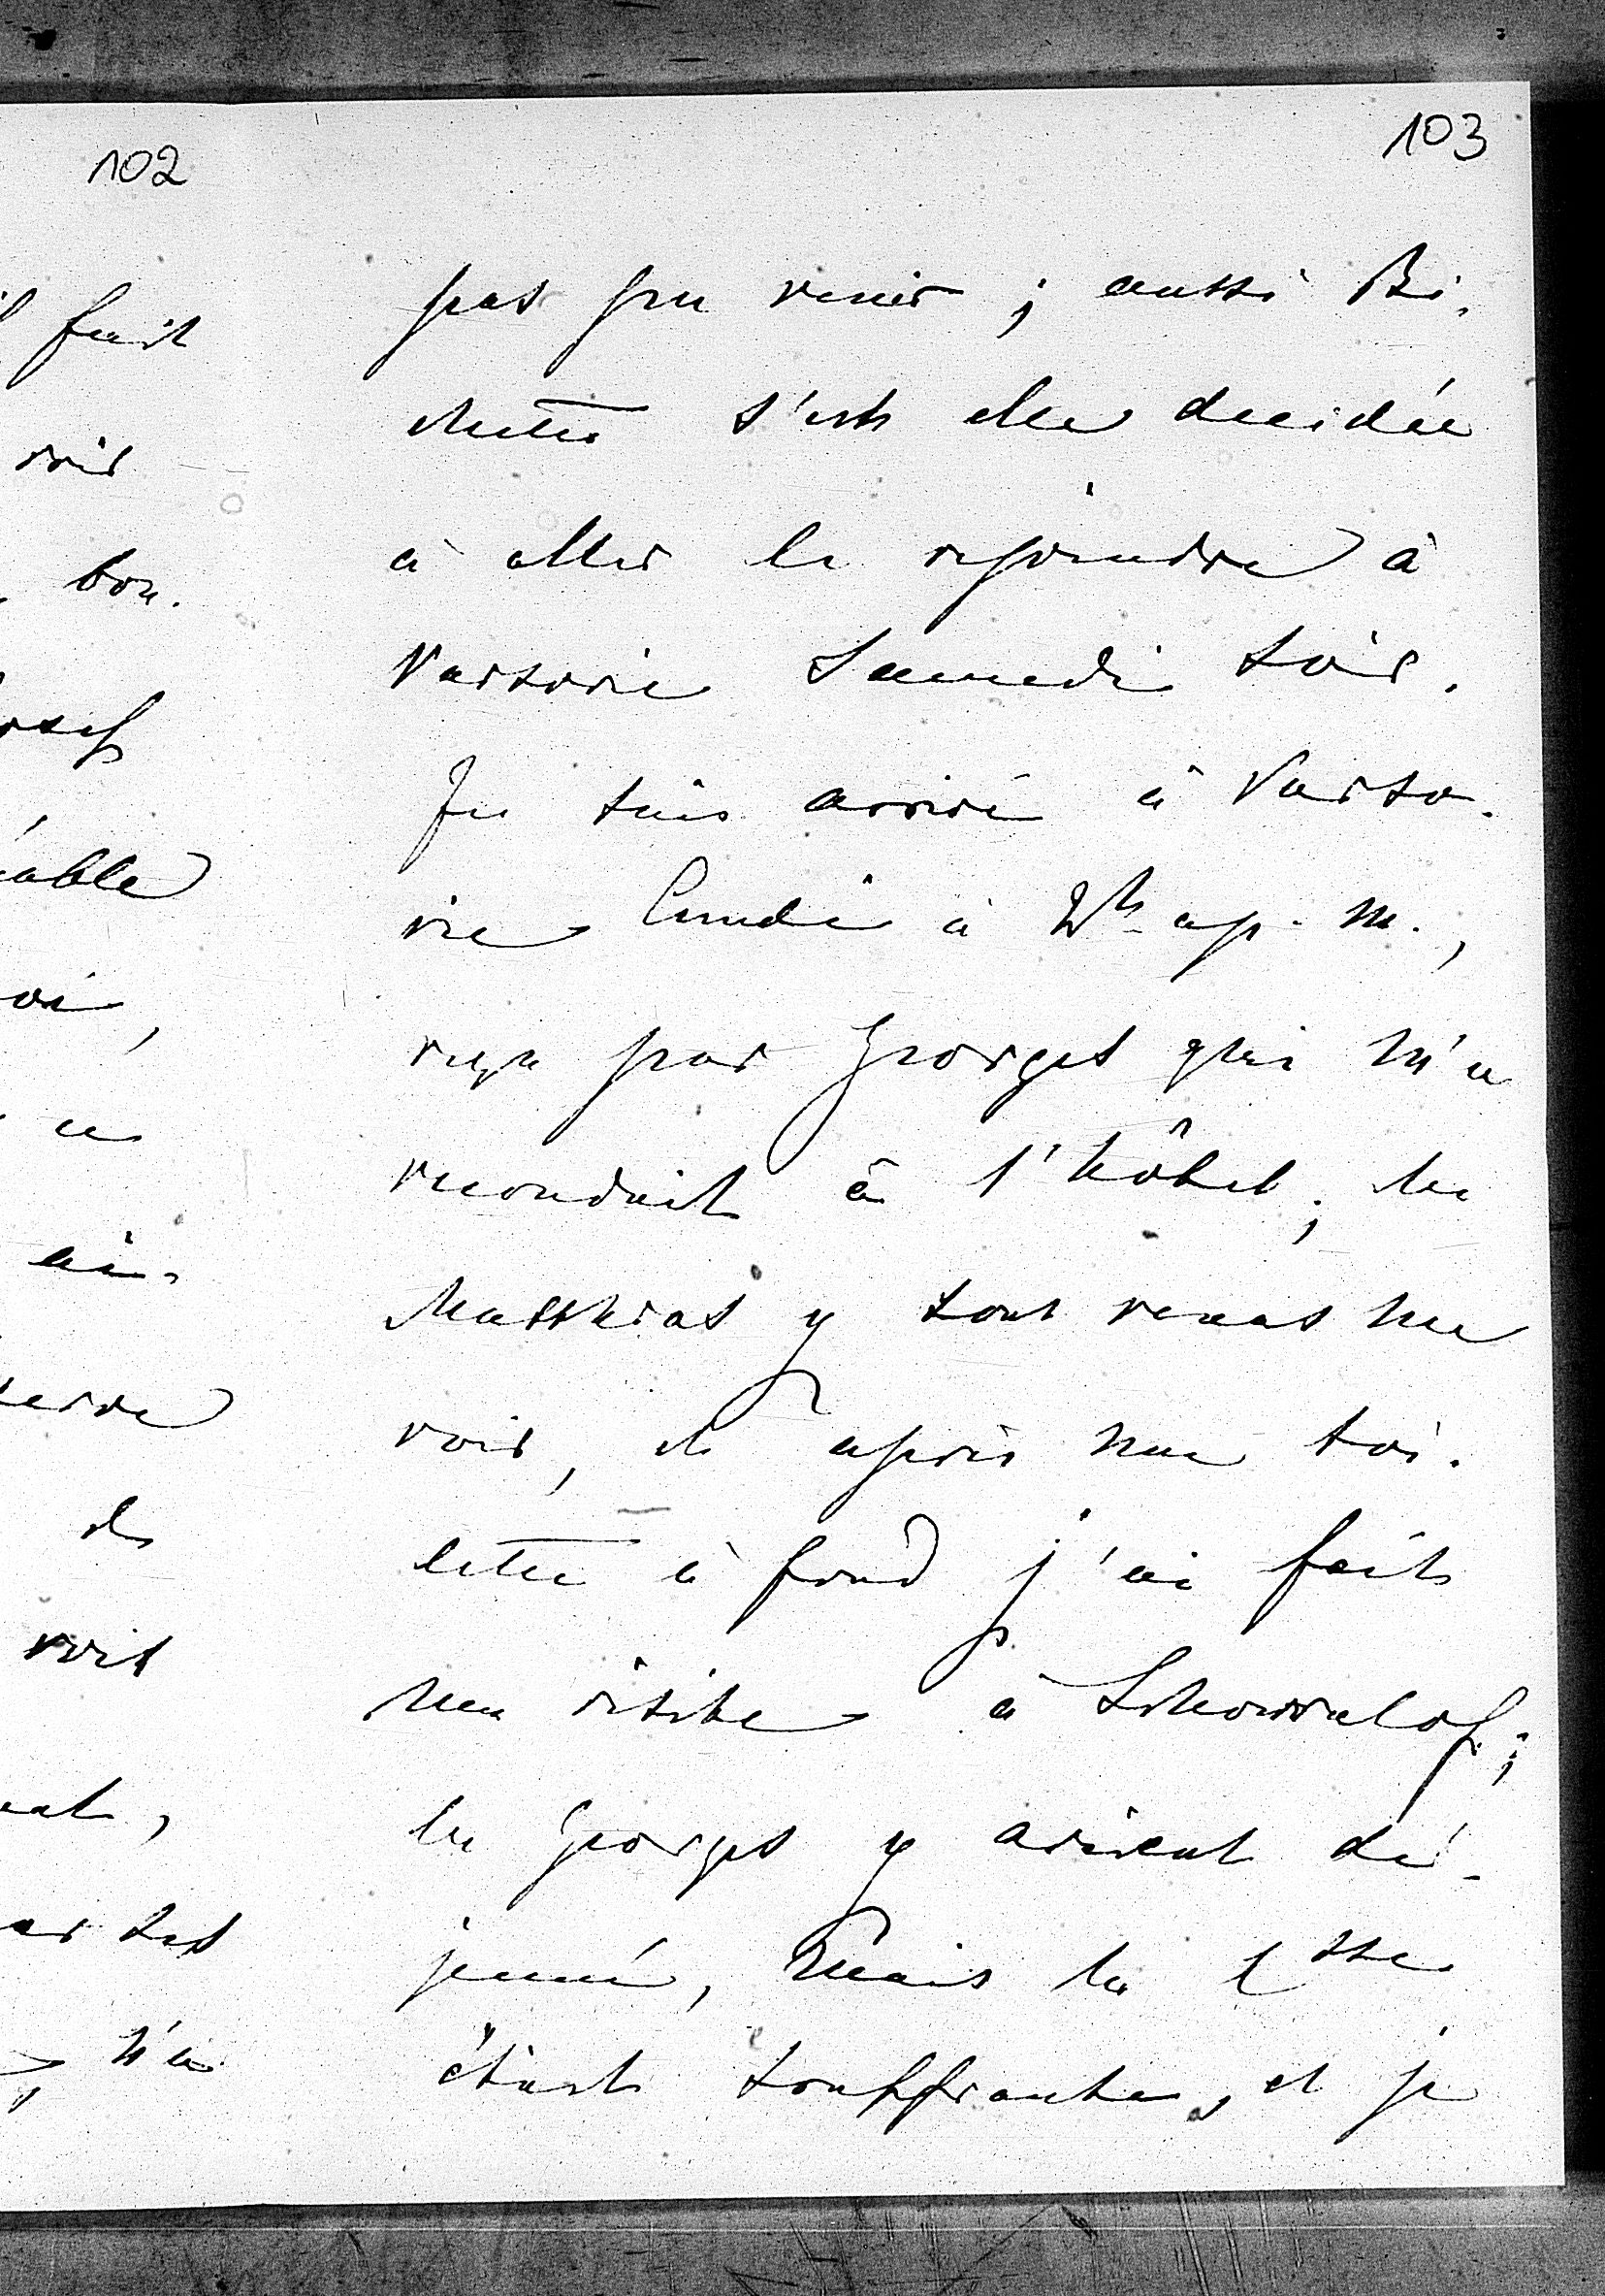 102
fait
voir
bon.
able
oi,
a
ai-
terre
et
voit
ar ses
m'a
103
pas pu venir ; aussi Bi-
chette s'est elle decidée
à aller le rejoindre à
Varsovie Samedi soir.
Je suis arrivé à Varso-
vie lundi à 2h ap. m.,
reçu par Georges qui m'a
reconduit à l'hôtel; les
Matthias y sont venus me
voir, et après une toi-
lette à fond j'ai fait
une visite à Schouvalof;
les Georges y avaient dé-
jeuné, mais la Ctsse
était souffrante, et je